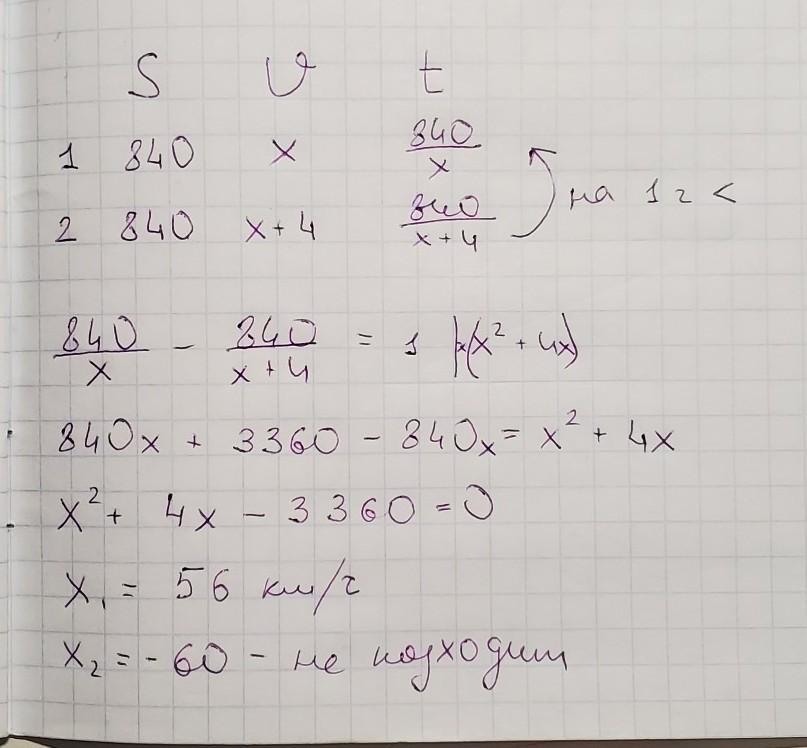 S υ t
1 840 x 840/x
2 840 x+4 840/(x+4) на 1 ч <
840/x - 840/(x+4) = 1 |×(x² + 4x)
840x + 3360 - 840x = x² + 4x
x² + 4x - 3360 = 0
x₁ = 56 км/ч
x₂ = -60 - не подходит